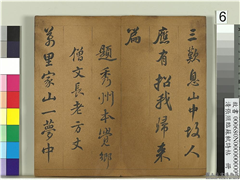 三歎息山中故人
應有招我歸來
篇
題秀州本覺鄉
僧文長老方丈
萬里家山一夢中
6